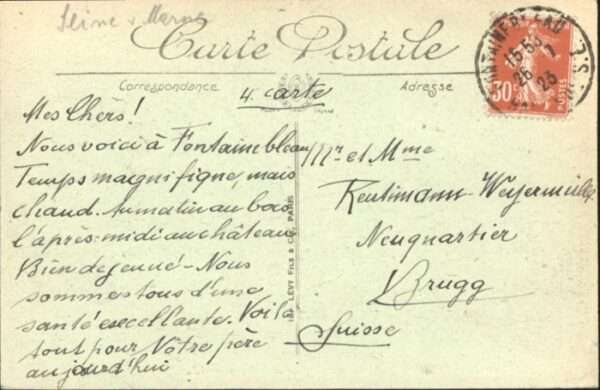 Seine & Marne
Carte Postale
Correspondance
Adresse
4. carte
Mes Chèrs!
Nous voici à Fontainebleau
Temps magnifique, mais
chaud. Au matin au bois
l'après-midi au château
Bien dejeuné - Nous
sommes tous d'une
santé excellante. Voila
tout pour Votre père
aujourd'hui
Mr et Mme
Weyermüller
Neuquartier
Brugg
Suisse
LÉVY FILS & Cie, PARIS
15-55
26
23
30
POSTES